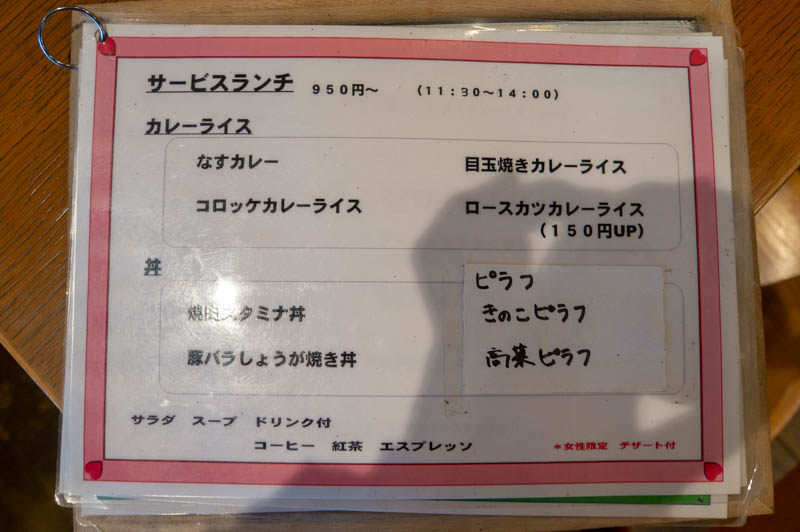 サービスランチ 950円～ (11:30～14:00)
カレーライス
なすカレー 目玉焼きカレーライス
コロッケカレーライス ロースカツカレーライス
(150円UP)
丼
焼肉スタミナ丼
豚バラしょうが焼き丼
ピラフ
きのこピラフ
高菜ピラフ
サラダ スープ ドリンク付
コーヒー 紅茶 エスプレッソ
*女性限定 デザート付